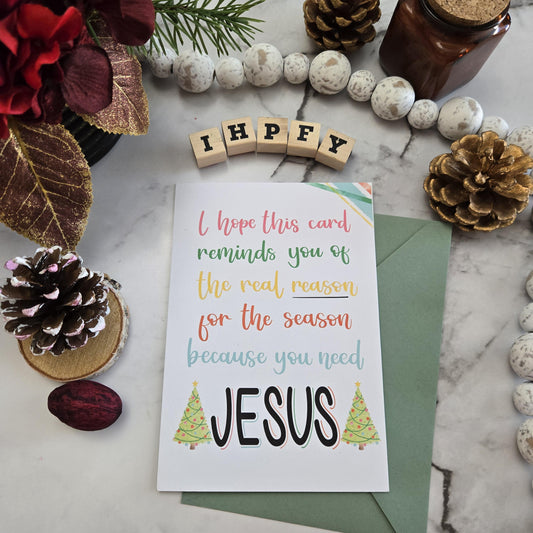 IHPFY
I hope this card
reminds you of
the real reason
for the season
because you need
JESUS